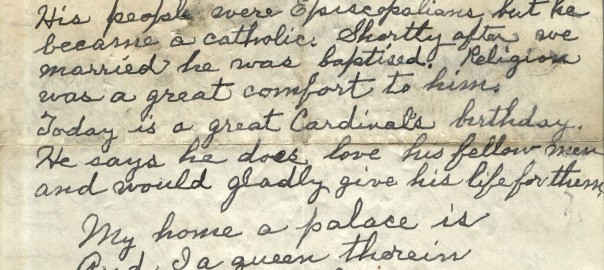 His people were Episcopalians but he
became a catholic. Shortly after we
married he was baptised. Religion
was a great comfort to him.
Today is a great Cardinal's birthday.
He says he does love his fellow men
and would gladly give his life for them,
My home a palace is
And I a queen therein